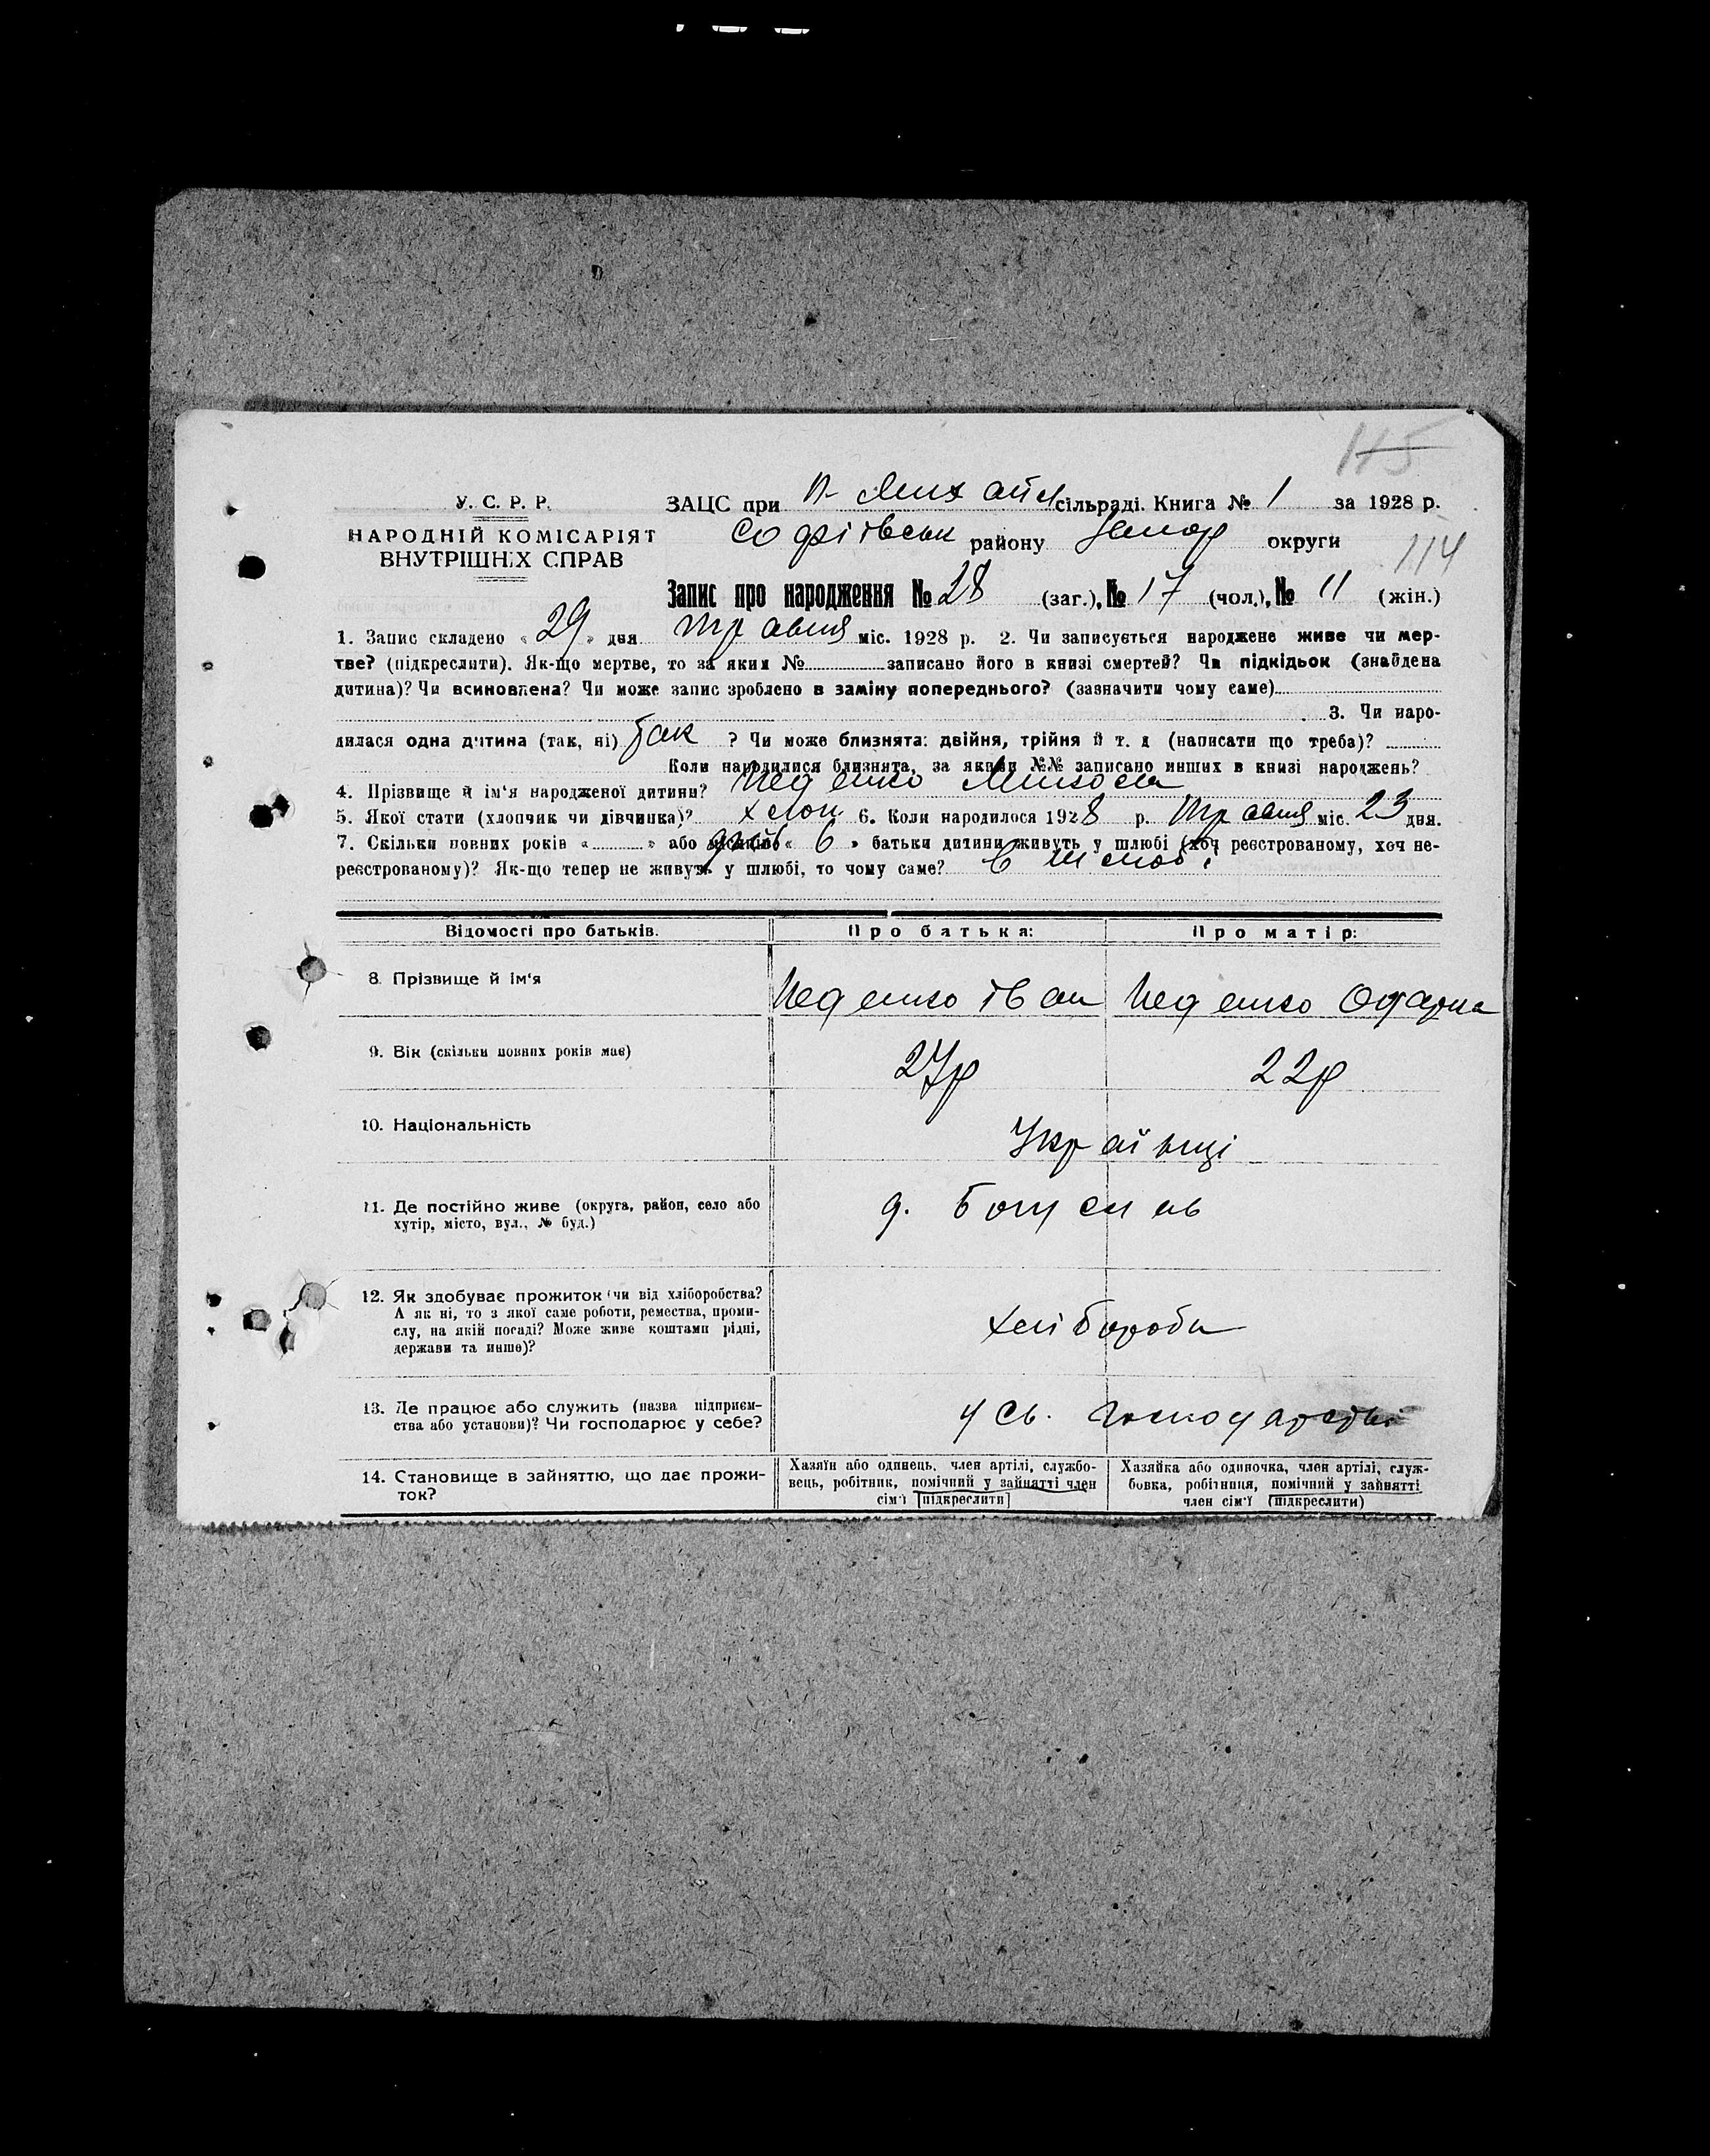 115
У. С. Р. Р.
НАРОДНІЙ КОМІСАРІЯТ
ВНУТРІШНІХ СПРАВ
ЗАЦС при Н- Михайл сільраді. Книга № 1 за 1928 р.
Софіївськ району Запор округи
114
Запис про народження № 28 (заг.), № 17 (чол.), № 11 (жін.)
1. Запис складено « 29 » дня травня міс. 1928 р. 2. Чи записується народжене живе чи мер-
тве? (підкреслити). Як-що мертве, то за яким № записано його в книзі смертей? Чи підкідьок (знайдена
дитина)? Чи всиновлена? Чи може запис зроблено в заміну попереднього? (зазначити чому саме)
3. Чи наро-
дилася одна дитина (так, ні) так ? Чи може близнята: двійня, трійня й т. д (написати що треба)?
Коли народилися близнята, за якими №№ записано инших в книзі народжень?
4. Прізвище й ім'я народженої дитини? Педенко Микола
5. Якої стати (хлопчик чи дівчинка)? хлоп 6. Коли народилося 1928 р. травня міс. 23 дня.
7. Скільки повних років « » або « 6 » батьки дитини живуть у шлюбі (хоч реєстрованому, хоч не-
реєстрованому)? Як-що тепер не живуть у шлюбі, то чому саме? в шлюбі
Відомості про батьків. Про батька: Про матір:
8. Прізвище й ім'я Педенко Іван Педенко Одарка
9. Вік (скільки повних років має) 27р 22р
10. Національність Українці
11. Де постійно живе (округа, район, село або
хутір, місто, вул., № буд.)
12. Як здобуває прожиток (чи від хліборобства?
А як ні, то з якої саме роботи, ремества, проми-
слу, на якій посаді? Може живе коштами рідні,
держави та инше)?
хлібороби
13. Де працює або служить (назва підприєм-
ства або установи)? Чи господарює у себе?
у св. господарстві
14. Становище в зайняттю, що дає прожи-
ток?
Хазяїн або одинець, член артілі, службо-
вець, робітник, помічний у зайнятті член
сім'ї (підкреслити)
Хазяйка або одиночка, член артілі, служ-
бовка, робітниця, помічний у зайнятті
член сім'ї (підкреслити)